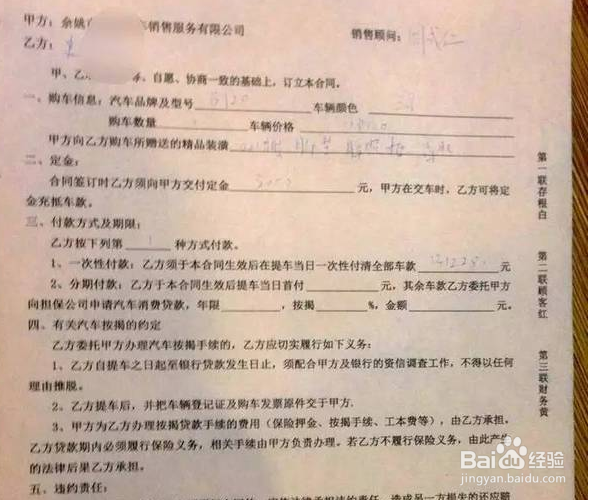 甲方：余姚 车销售服务有限公司 销售顾问：
乙方：
甲、乙 、自愿、协商一致的基础上，订立本合同。
一、购车信息：汽车品牌及型号 车辆颜色
购车数量 车辆价格
甲方向乙方购车所赠送的精品装潢
二、定金：
合同签订时乙方须向甲方交付定金 元，甲方在交车时，乙方可将定
金充抵车款。
三、付款方式及期限：
乙方按下列第 1 种方式付款。
1、一次性付款：乙方须于本合同生效后在提车当日一次性付清全部车款 元
2、分期付款：乙方于本合同生效后提车当日首付 元，其余车款乙方委托甲方
向担保公司申请汽车消费贷款，年限 ，按揭 %，金额 元。
四、有关汽车按揭的约定
乙方委托甲方办理汽车按揭手续的，乙方应切实履行如下义务：
1、乙方自提车之日起至银行贷款发生日止，须配合甲方及银行的资信调查工作，不得以任何
理由推脱。
2、乙方提车后，并把车辆登记证及购车发票原件交于甲方.
3、甲方为乙方办理按揭贷款手续的费用（保险押金、按揭手续、工本费等），由乙方承担。
乙方贷款期内必须履行保险义务，相关手续由甲方负责办理。若乙方不履行保险义务，由此产生
的法律后果乙方承担。
五、违约责任：
造成另一方损失的还应赔
第一联存根白
第二联顾客红
第三联财务黄
Bai 经验
jingyan.baidu.com